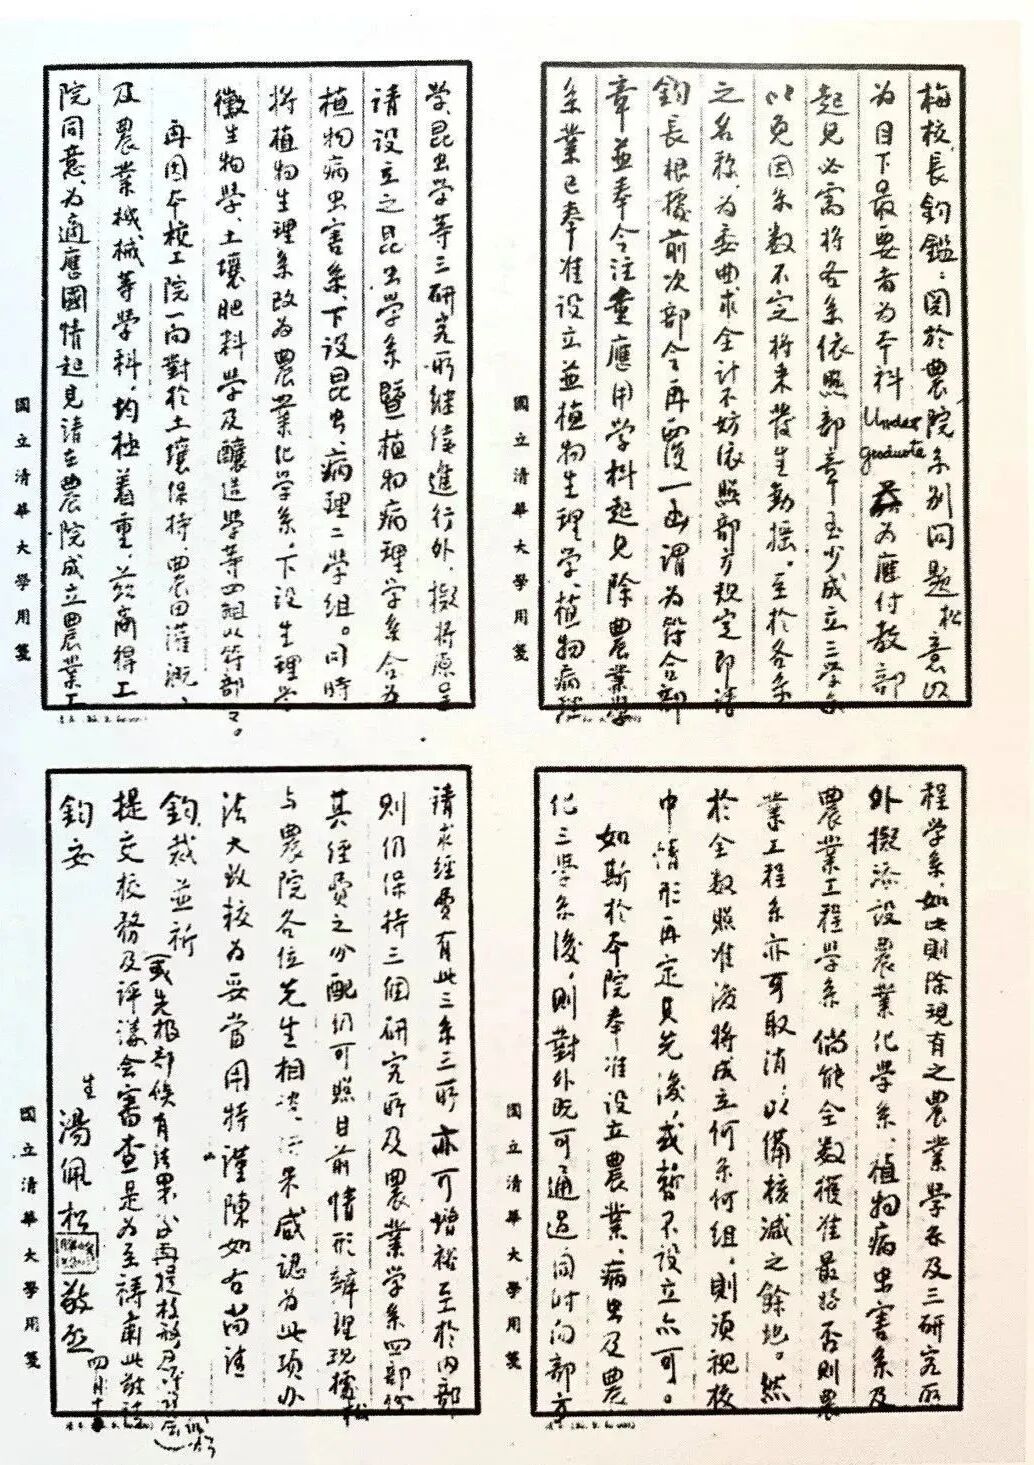 梅校長鈞鑑：関於農院系別问題，松意以
为目下最要者为本科 Under
graduate 为應付教部
起見必需将各系依照部章至少成立三學系
以免因系数不定将来發生動摇。至於各系
之名称，为委曲求全计不妨依照部方规定即请
鈞長根據前次部令再覆一函谓为符合部
章並奉令注重應用学科起見除農業學
系業已奉准设立並植物生理学、植物病理
学、昆虫学等三研究所继续進行外，擬将原呈
请设立之昆虫学系暨植物病理学系合为
植物病虫害系，下设昆虫、病理二学组。同時
将植物生理系改为農業化学系，下设生理学
微生物學、土壤肥料学及釀造学等四組以符部令。
再因本校工院一向對於土壤保持、農田灌溉、
及農業械械等学科，均極着重，兹商得工
院同意，为適應國情起見请在農院成立農業工
國立清華大學用箋
國立清華大學用箋
程学系，如此则除現有之農業学系及三研究所
外擬添设農業化学系、植物病虫害系及
農業工程学系 倘能全数獲准最好否则農
業工程系亦可取消，以備核減之餘地。然
於全数照准後将成立何系何組，则须视校
中情形再定其先後，或暫不设立亦可。
如斯於本院奉准设立農業、病虫及農
化三学系後，则對外既可通过同时向部方
请求經費有此三系三所亦可增裕至於内部
则仍保持三個研究所及農業学系四部份
其经費之分配仍可照目前情形辦理現據松
与農院各位先生相咨，结果咸認为此項办
法大致較为妥當用特谨陳如右尚请
鈞裁並祈
（或先报部俟有结果後再提校務及評議会
提交校務及评議会審查是为至禱肅此敬請
鈞安
生 湯佩松 敬啟
四月十
國立清華大學用箋
國立清華大學用箋